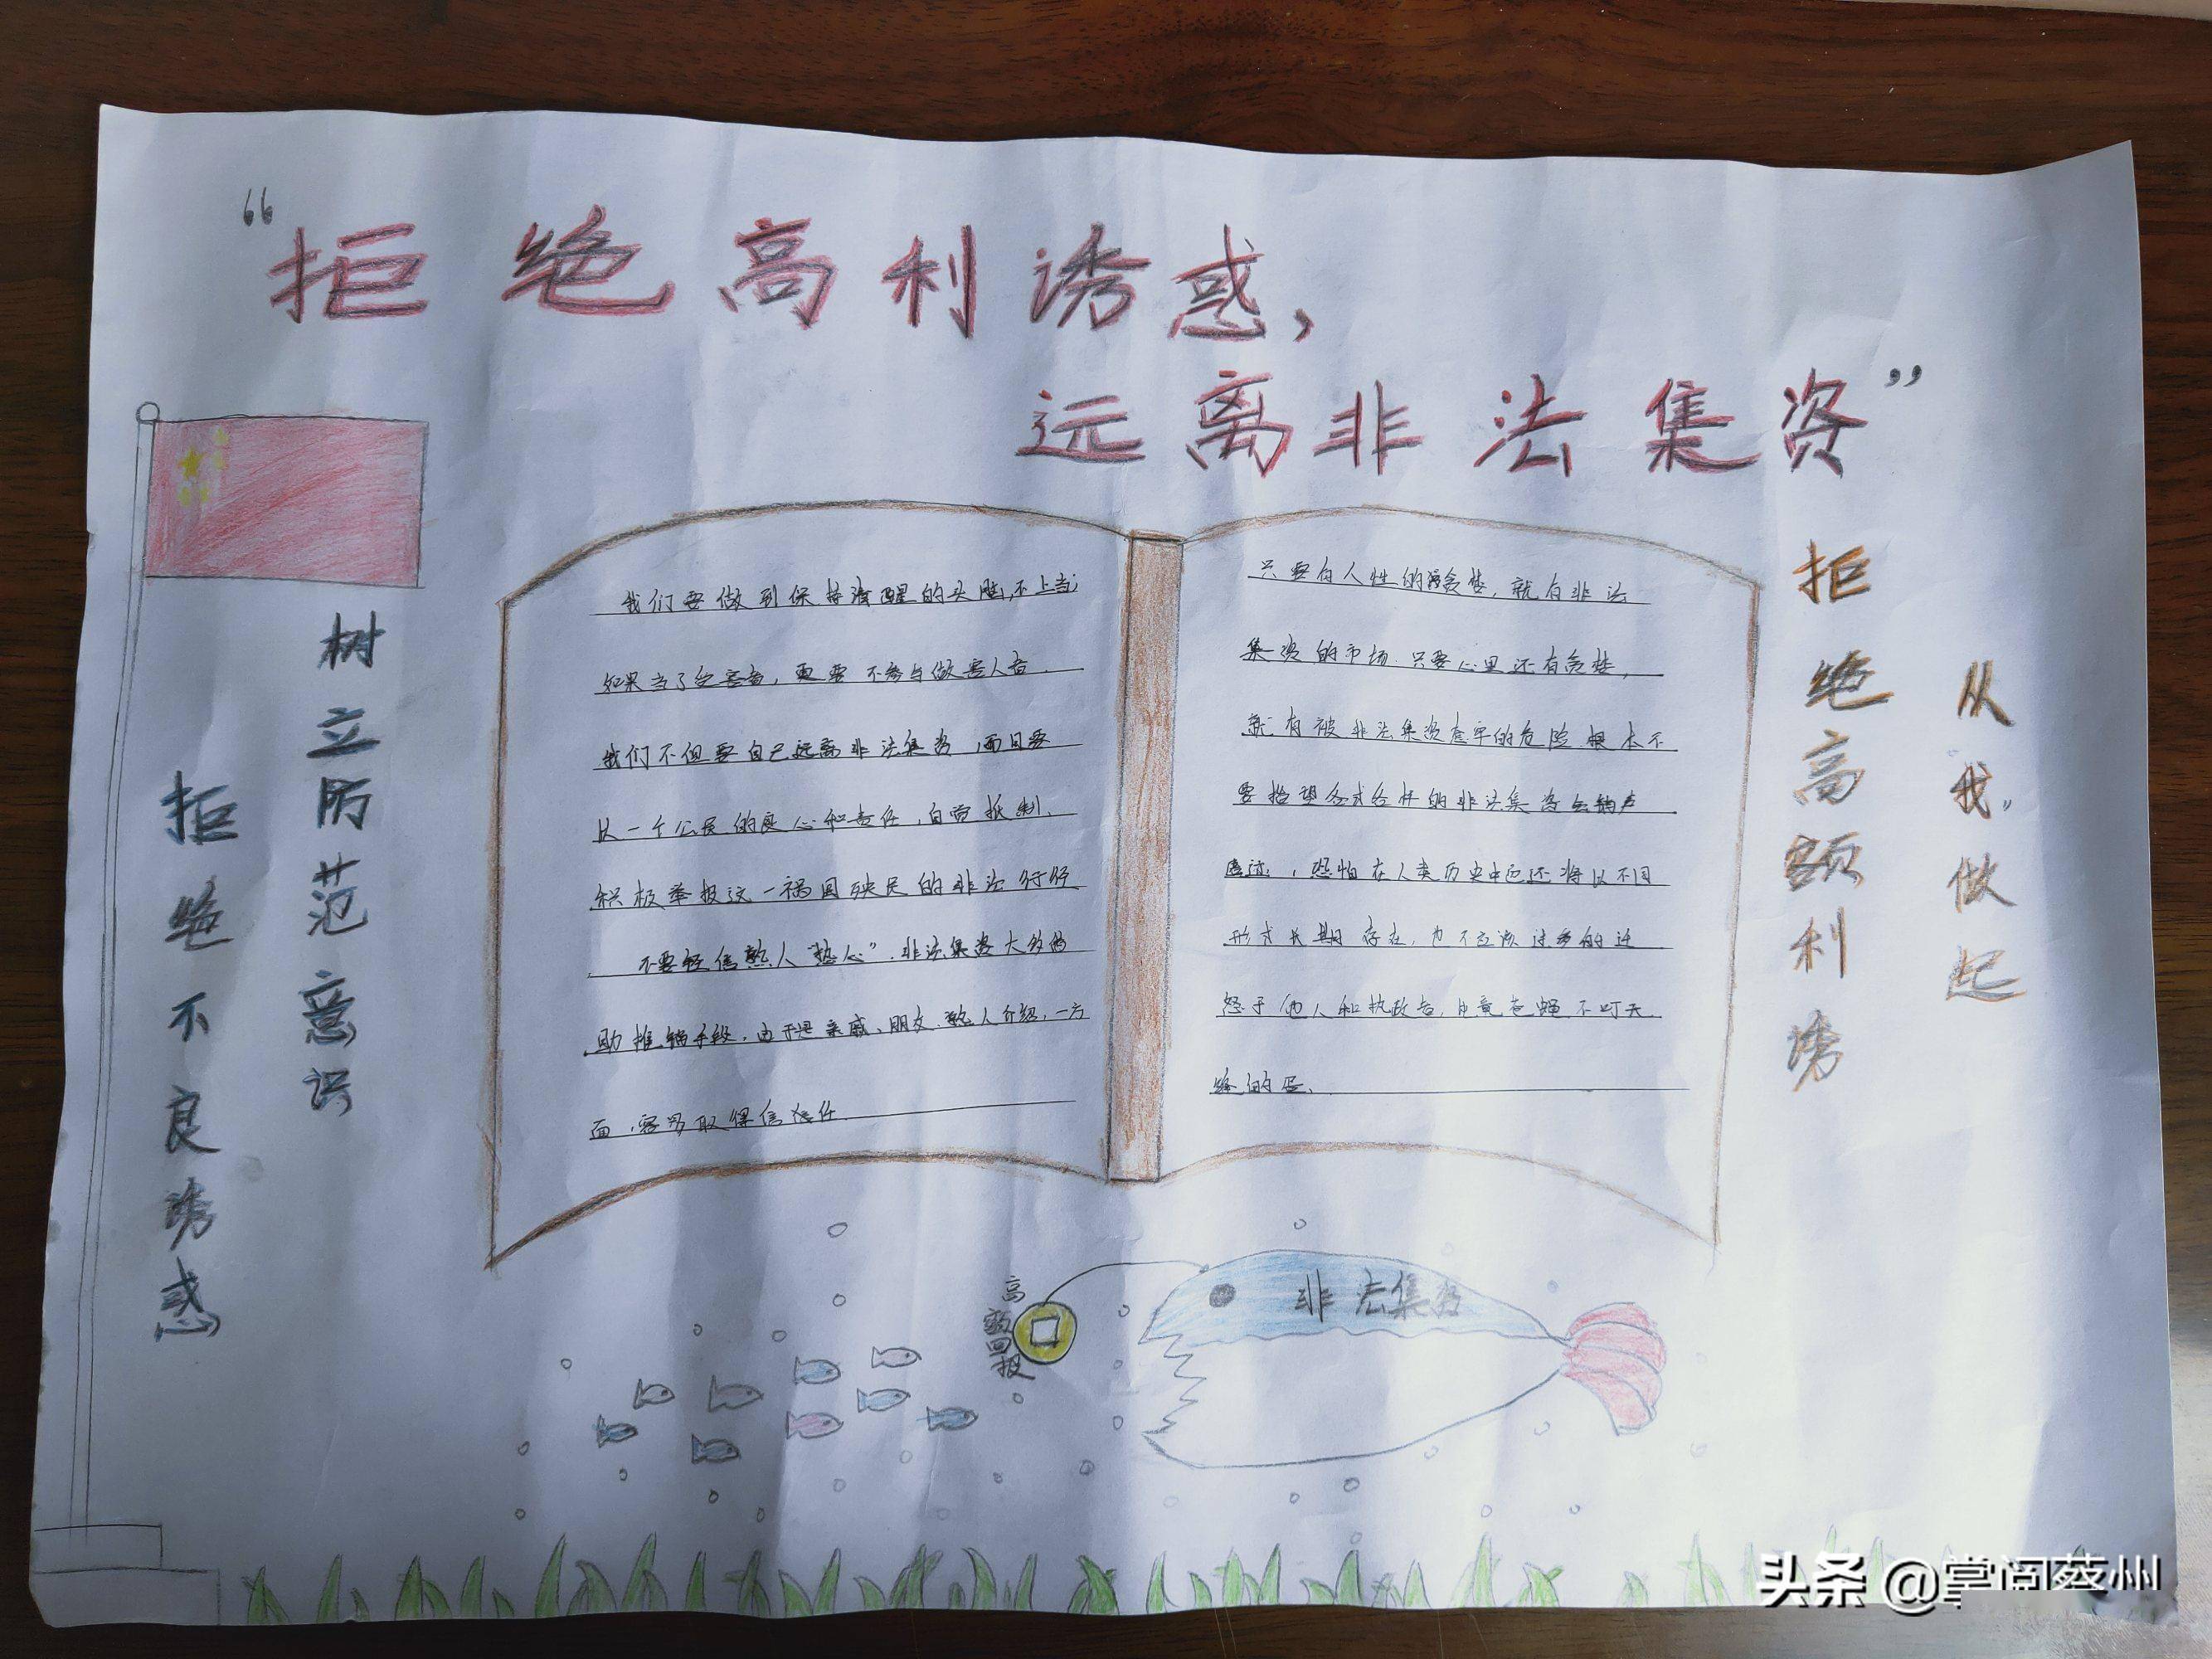 “拒绝高利诱惑,
远离非法集资”
树立防范意识
拒绝不良诱惑
我们要做到保持清醒的头脑,不上当;
如果当了受害者,更要不参与做害人者.
我们不但要自己远离非法集资,而且要
以一个公民的良心和责任,自觉抵制、
积极举报这一祸国殃民的非法行径
不要轻信熟人“热心”.非法集资大多
助推销手段,由于是亲戚、朋友、熟人介绍,一方
面,容易取得信任
只要有人性的贪婪,就有非法
集资的市场.只要心里还有贪婪,
就有被非法集资套牢的危险 根本不
要指望各式各样的非法集资会销声
匿迹,恐怕在人类历史中它还将以不同
形式长期存在,也不应该过多的迁
怒于他人和执政者,毕竟苍蝇不叮无
缝的蛋、
拒绝高额利诱
从我,做起
高额回报
非法集资
头条 @掌阅蔡州